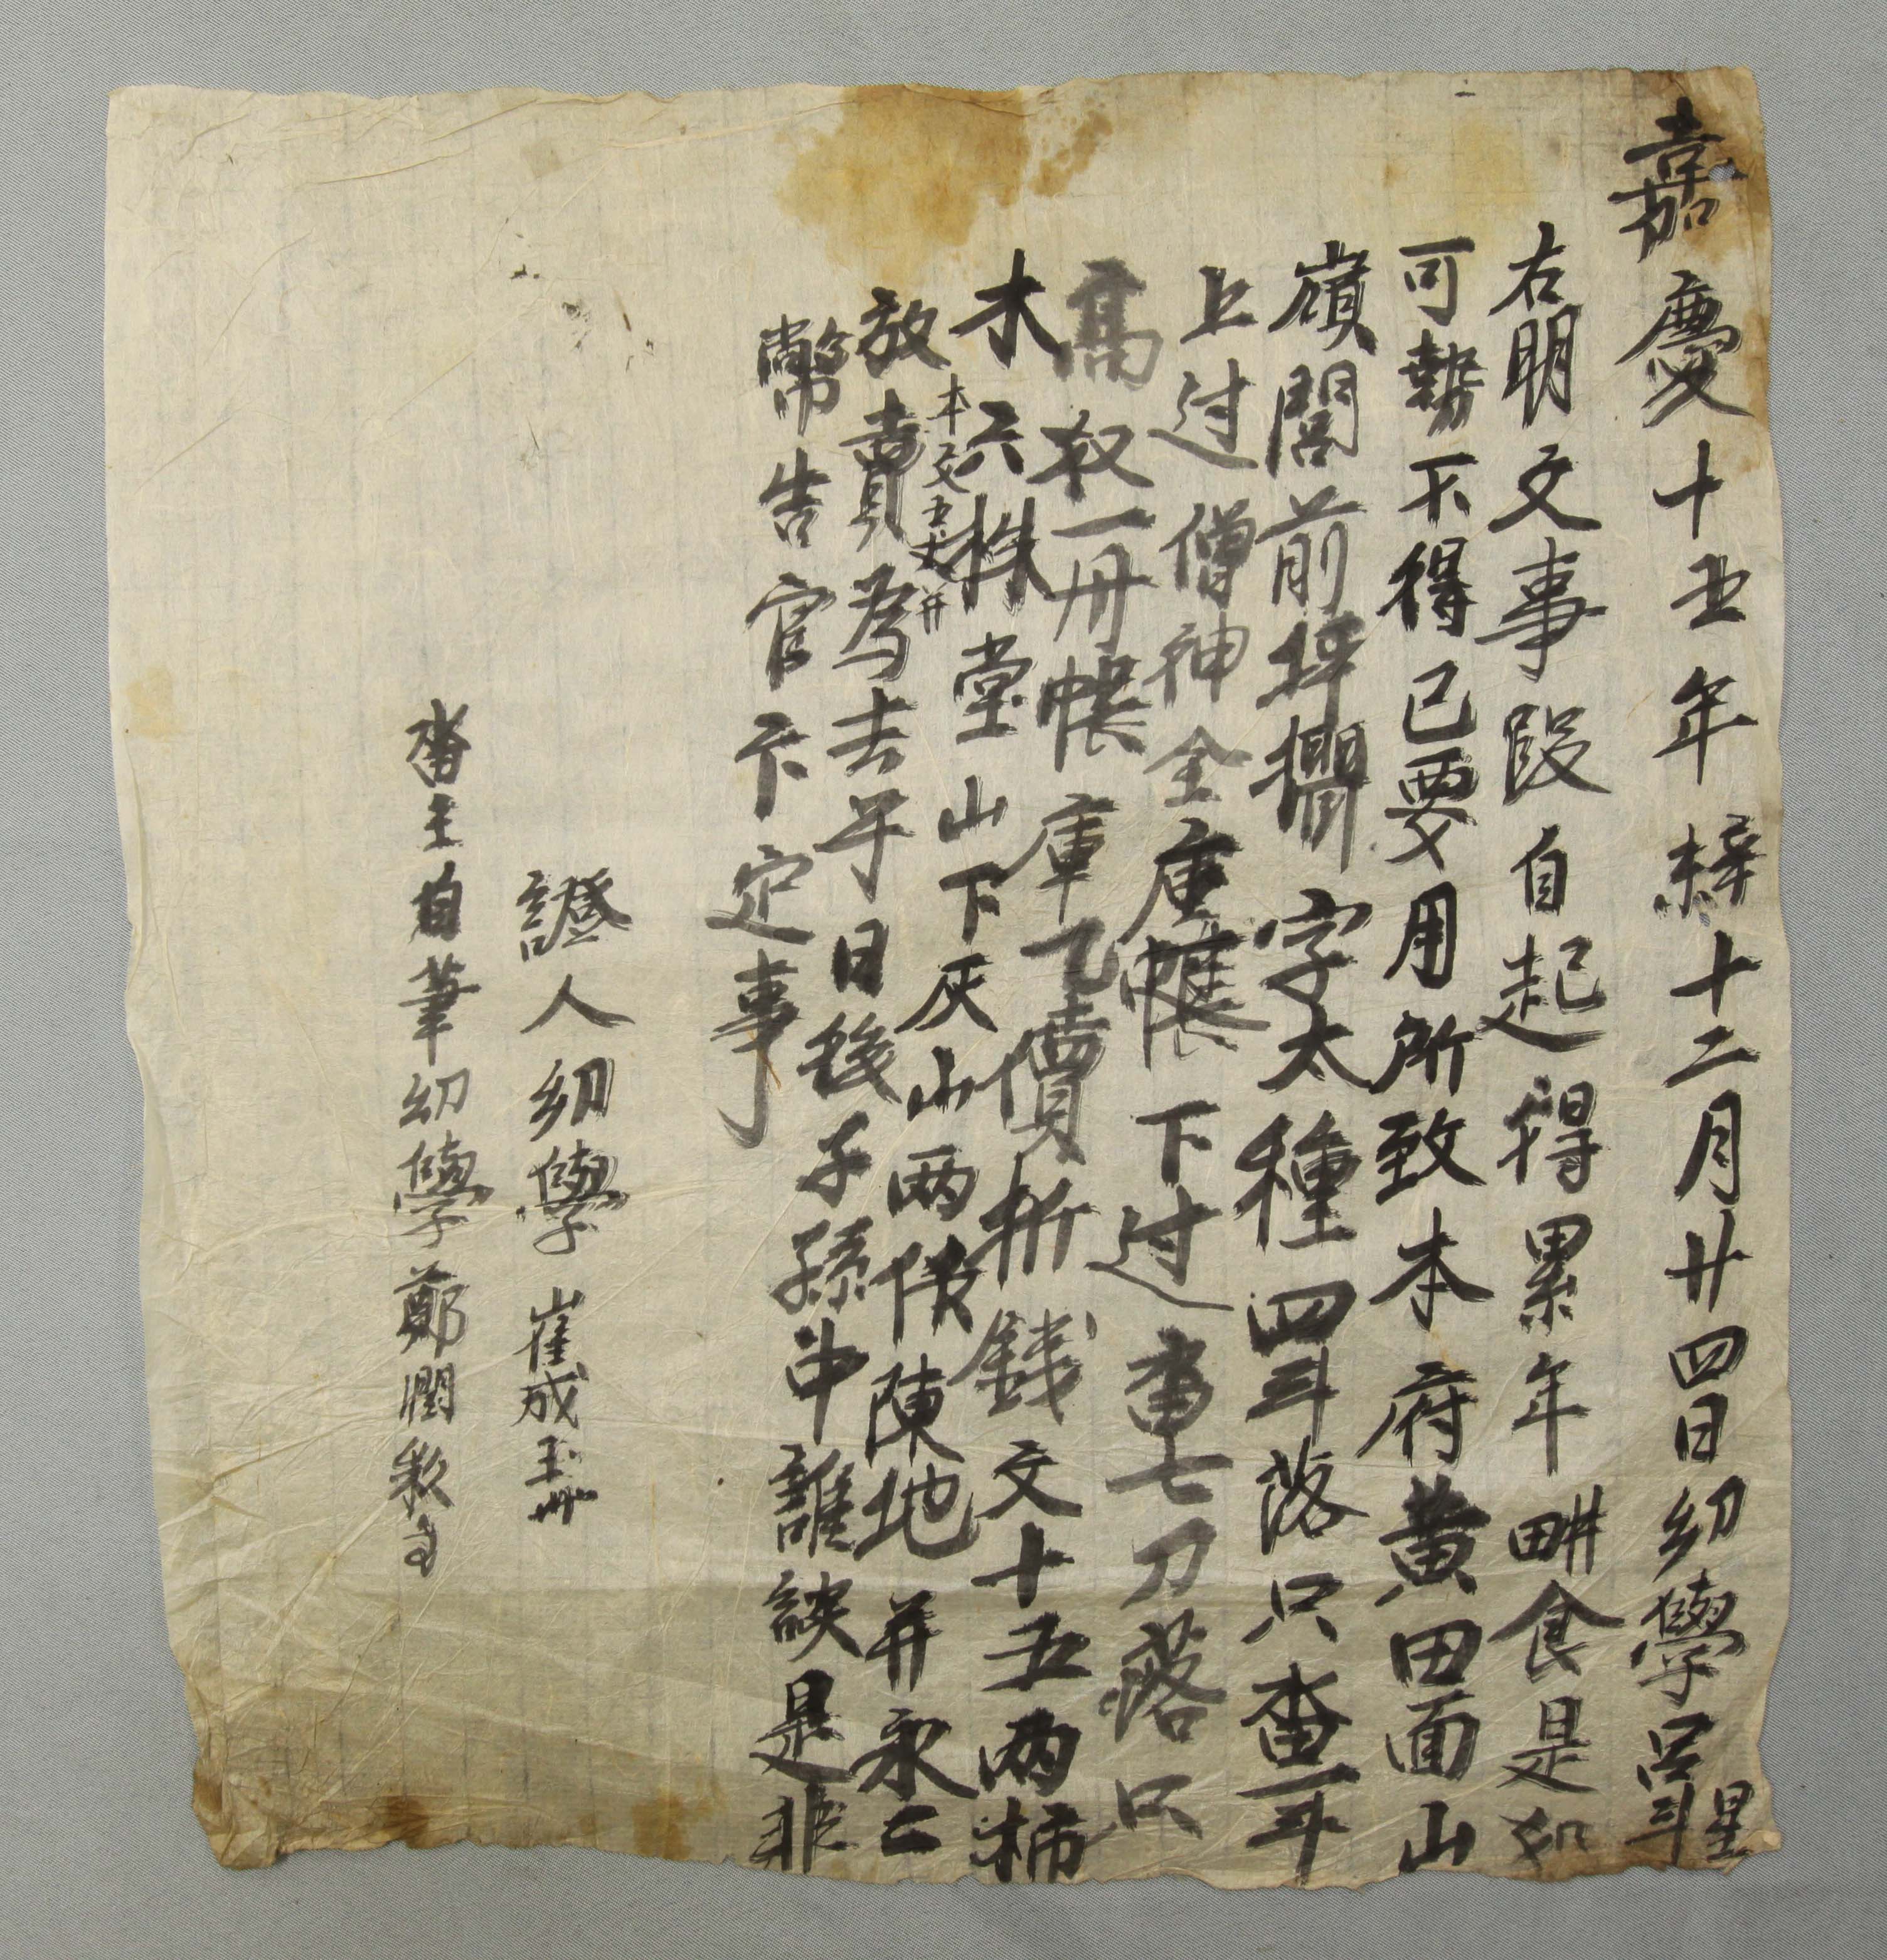 嘉慶十五年 十二月廿四日幼學呂斗星
右明文事段自起得累年畊食是如
可勢不得已要用所致本府黃田面山
嶺閣前坪 字太種四斗落只畓一斗
上过僧神全庫帳下过畓七刀落只
高 一卅帳庫乙價折錢文十五兩柿
木六株堂山下灰山兩 陳地并永〻
本文五丈并
放賣為去乎日後子孫中誰 是非
幣告官卞定事
證人幼學崔成玉
畓主自筆幼學鄭潤